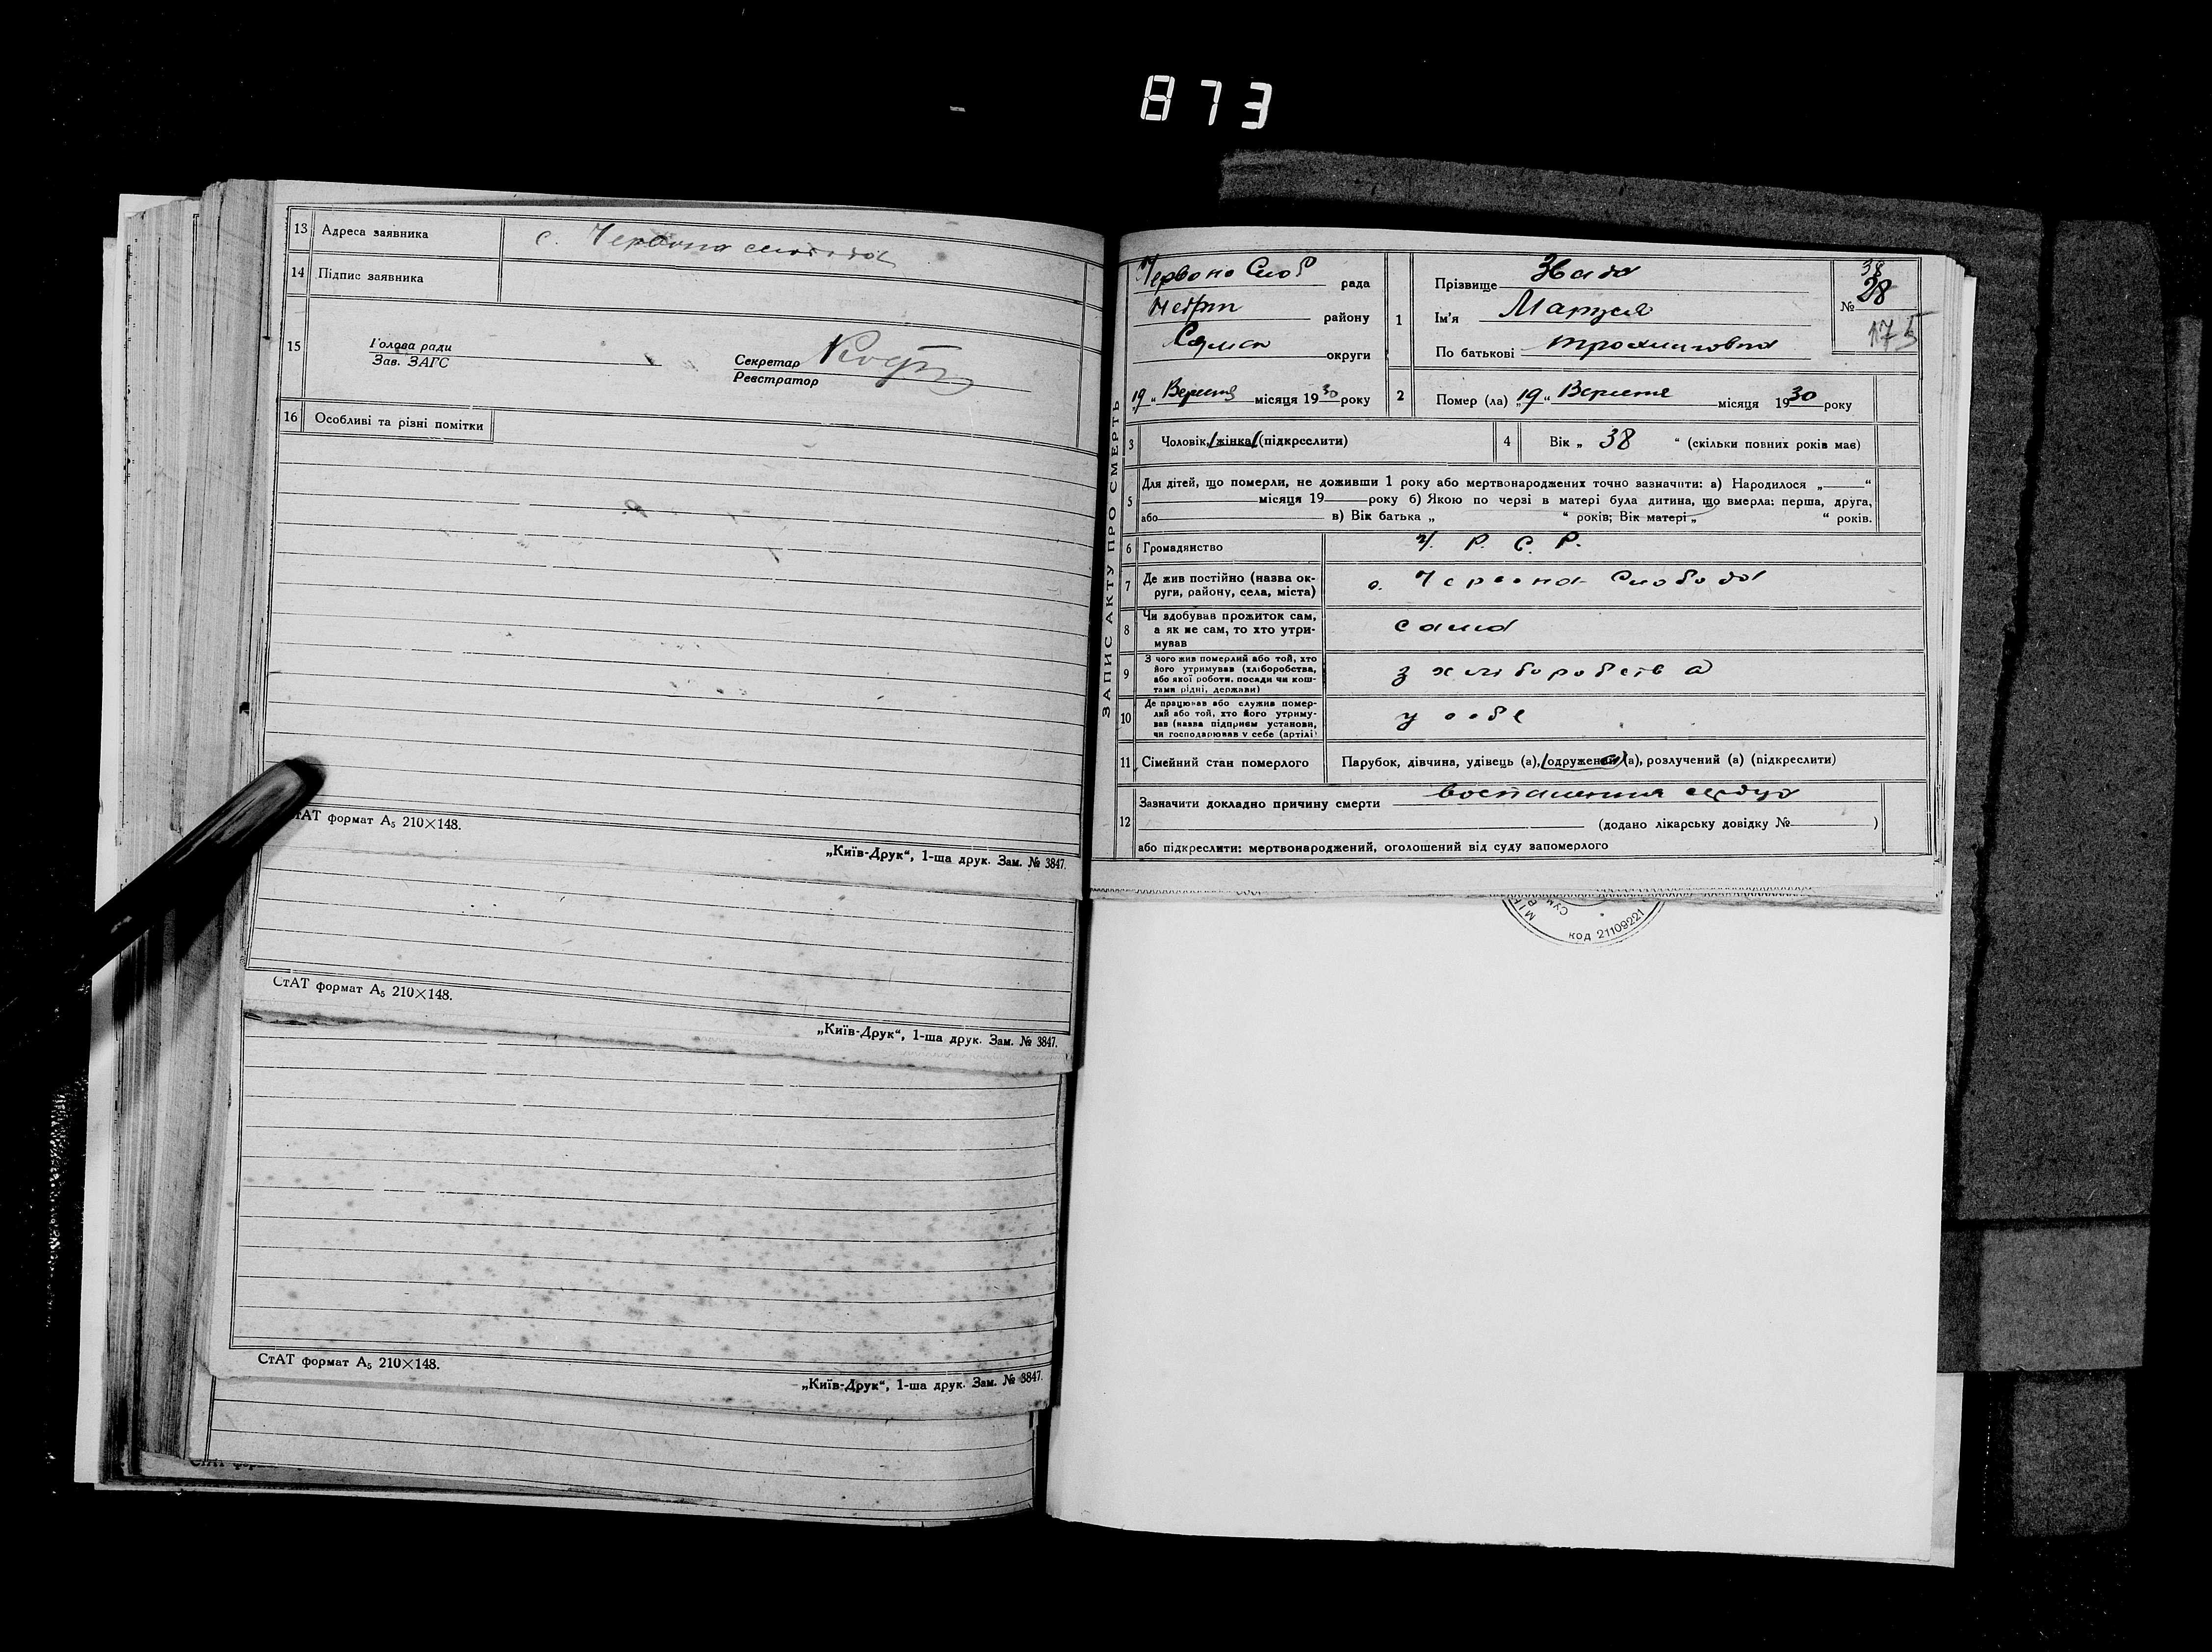 873
13 Адреса заявника с. Червона слобода
14 Підпис заявника
15 Голова ради
Зав. ЗАГС
Секретар
Реєстратор
16 Особливі та різні помітки
СтАТ формат А₅ 210×148.
„Київ-Друк“, 1-ша друк. Зам. № 3847.
СтАТ формат А₅ 210×148.
„Київ-Друк“, 1-ша друк. Зам. № 3847.
СтАТ формат А₅ 210×148.
„Київ-Друк“, 1-ша друк. Зам. № 3847.
ЗАПИС АКТУ ПРО СМЕРТЬ
Червоно Слоб рада
району
округи
„19“ Вересня місяця 1930 року
1 Прізвище
Ім'я Маруся
По батькові
38
№ 28
175
2 Помер (ла) „19“ Вересня місяця 1930 року
3 Чоловік, жінка (підкреслити)
4 Вік „ 38 “ (скільки повних років має)
5 Для дітей, що померли, не доживши 1 року або мертвонароджених точно зазначити: а) Народилося „ “
місяця 19 року б) Якою по черзі в матері була дитина, що вмерла: перша, друга,
або в) Вік батька „ “ років; Вік матері „ “ років.
6 Громадянство У. Р. С. Р.
7 Де жив постійно (назва ок-
руги, району, села, міста) с. Червона Слобода
8 Чи здобував прожиток сам,
а як не сам, то хто утри-
мував сама
9 З чого жив померлий або той, хто
його утримував (хліборобства,
або якої роботи, посади чи кош-
тами рідні, держави) з хліборобства
10 Де працював або служив помер-
лий або той, хто його утриму-
вав (назва підприєм установи,
чи господарював у себе (артілі) у себе
11 Сімейний стан померлого Парубок, дівчина, удівець (а), одружений (а), розлучений (а) (підкреслити)
12 Зазначити докладно причину смерти воспаления сердца
(додано лікарську довідку № )
або підкреслити: мертвонароджений, оголошений від суду запомерлого
код 21109221